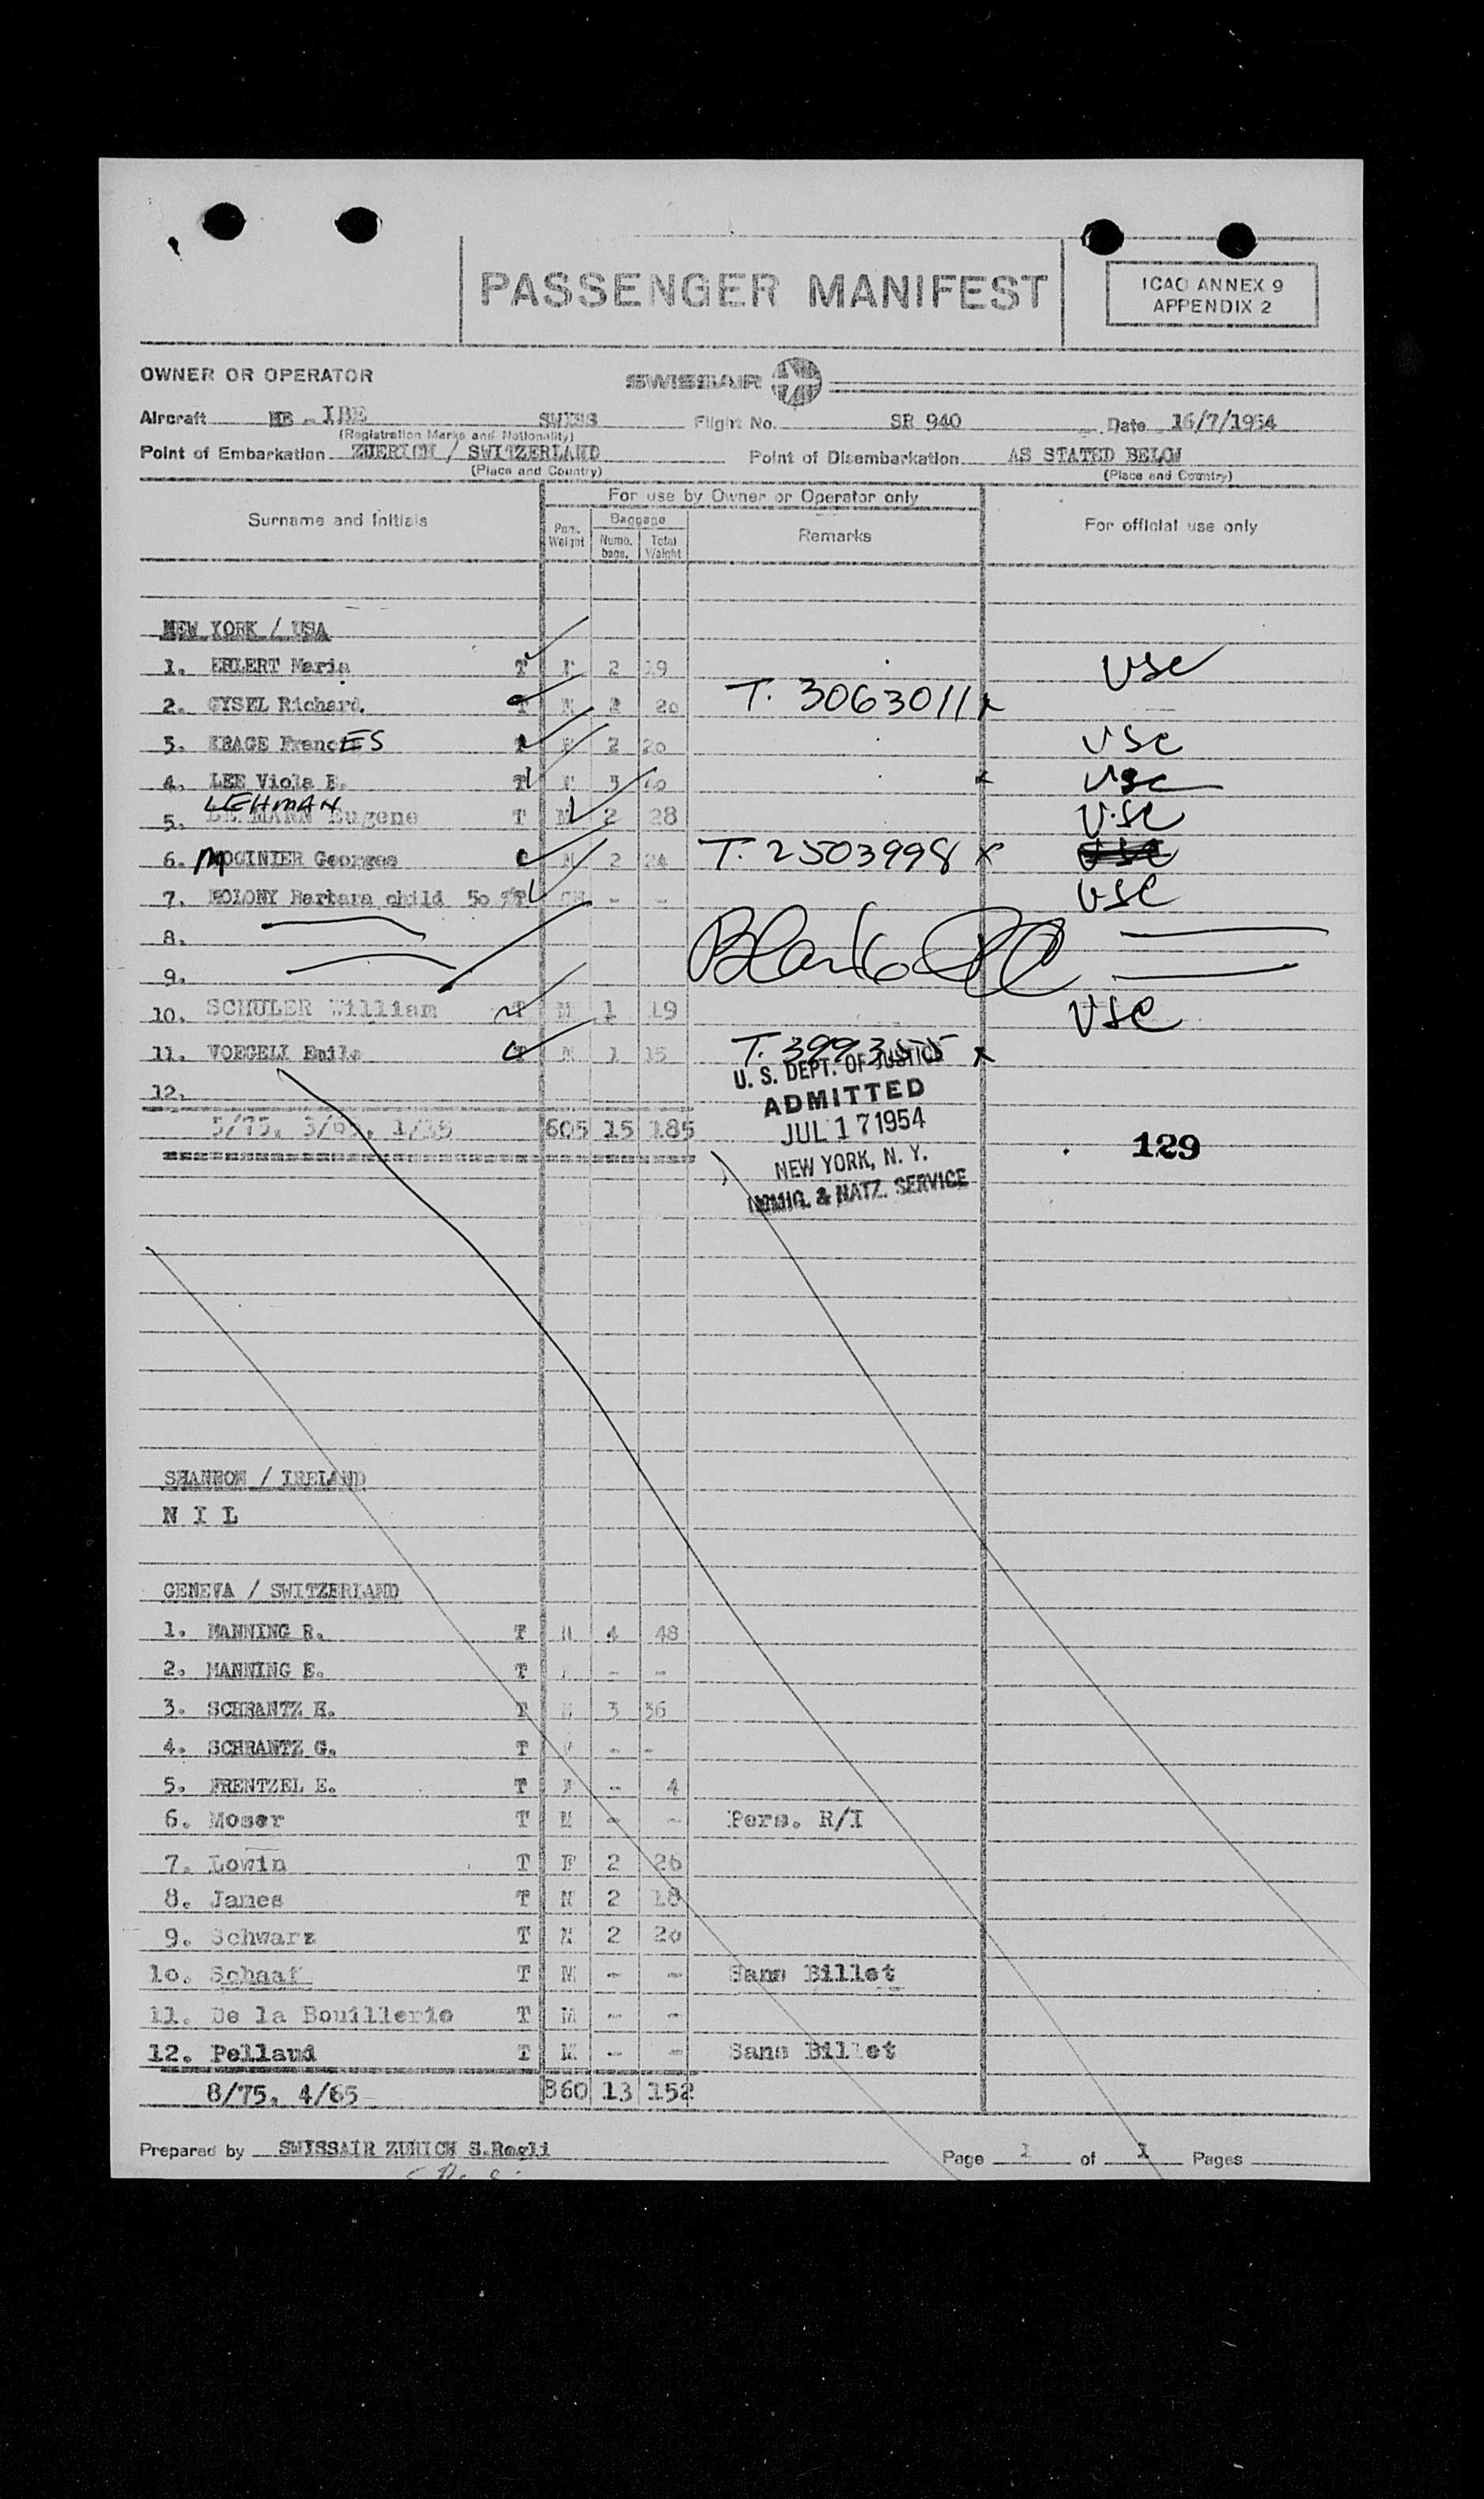 PASSENGER MANIFEST
ICAO ANNEX 9
APPENDIX 2
OWNER OR OPERATOR SWISSAIR
Aircraft HB - IBE SWISS Flight No. SR 940 Date 16/7/1954
(Registration Marks and Nationality)
Point of Embarkation ZUERICH / SWITZERLAND Point of Disembarkation AS STATED BELOW
(Place and Country) (Place and Country)
For use by Owner or Operator only
Surname and Initials Pers. Weight Baggage Numb. bags. Total Weight Remarks For official use only
NEW YORK / USA
1. EHLERT Maria T F 2 19 USC
2. GYSEL Richard. T M 2 20 T. 3063011 x
3. Franc ES 2 20 USC
4. LEE Viola E. T F 3 USC
LEHMAN
5. LE MANN Eugene T M 2 28 USC
6. MOGINIER Georges M 2 24 T. 2503998 x USC
7. Barbara child 50 % T CH - - USC
8.
9.
10. SCHULER William T M 1 19 USC
11. VOEGELI Emile T M 1 15 T. x
12.
605 15 185
U. S. DEPT. OF JUSTICE
ADMITTED
JUL 17 1954
NEW YORK, N. Y.
IMMIG. & NATZ. SERVICE
129
SHANNON / IRELAND
N I L
GENEVA / SWITZERLAND
1. MANNING R. T M 4 48
2. MANNING E. T - -
3. SCHRANTZ E. T M 3 36
4. SCHRANTZ G. T - -
5. FRENTZEL E. T - 4
6. Moser T M - - Pers. R/I
7. Lowin T F 2 26
8. James T M 2 18
9. Schwarz T M 2 20
10. Schaaf T M - - Sans Billet
11. De la Bouillerie T M - -
12. Pellaud T M - - Sans Billet
8/75, 4/65 860 13 152
Prepared by SWISSAIR ZURICH S.Regli Page 1 of 1 Pages